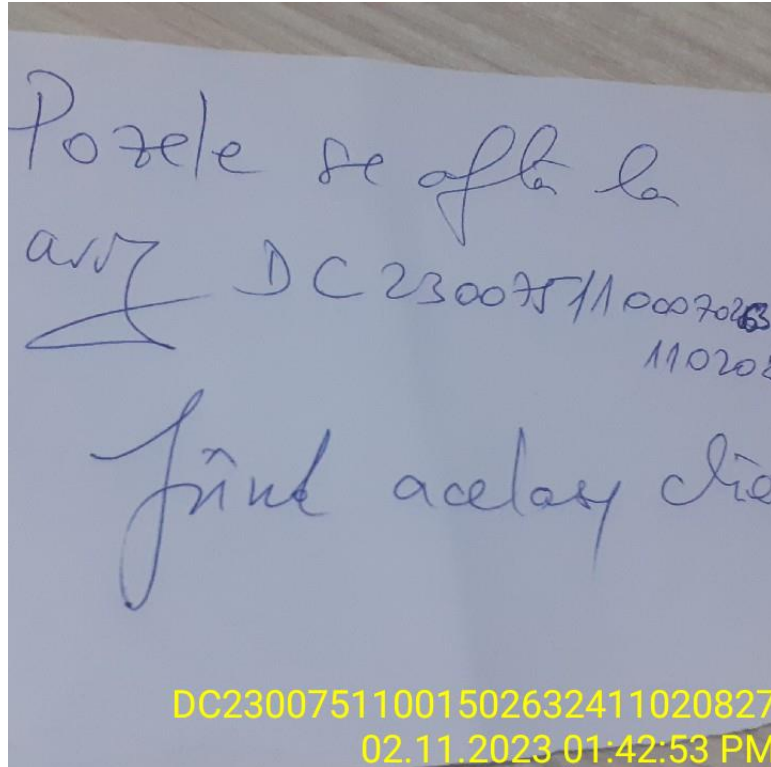 Pozele se află la
aviz DC2300751100070263
110208
Sînt același clie
DC23007511001502632411020827
02.11.2023 01:42:53 PM